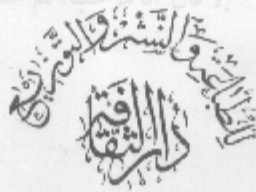 للطباعة والنشر والتوزيع
دار الثقافة